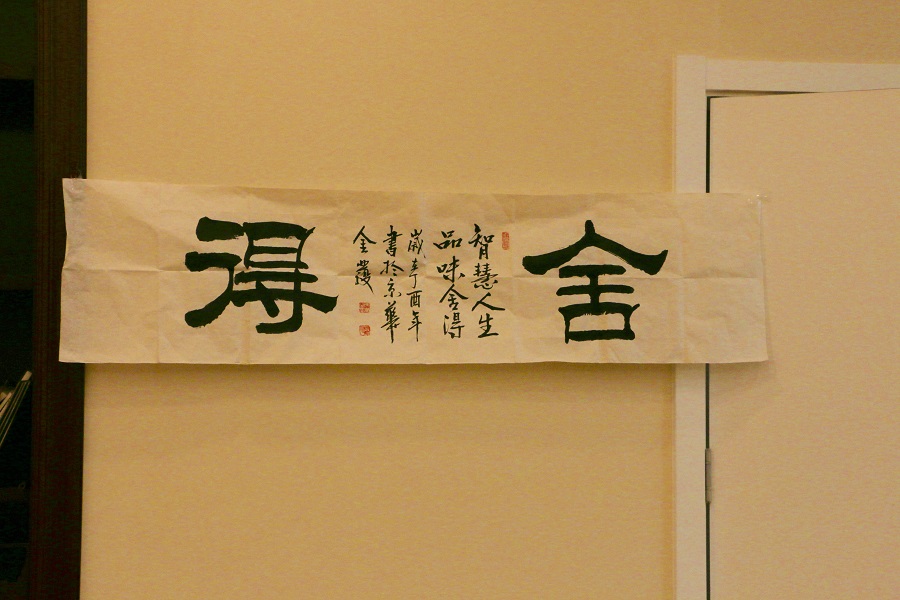 舍得
智慧人生
品味舍得
歲在丁酉年
書於京華